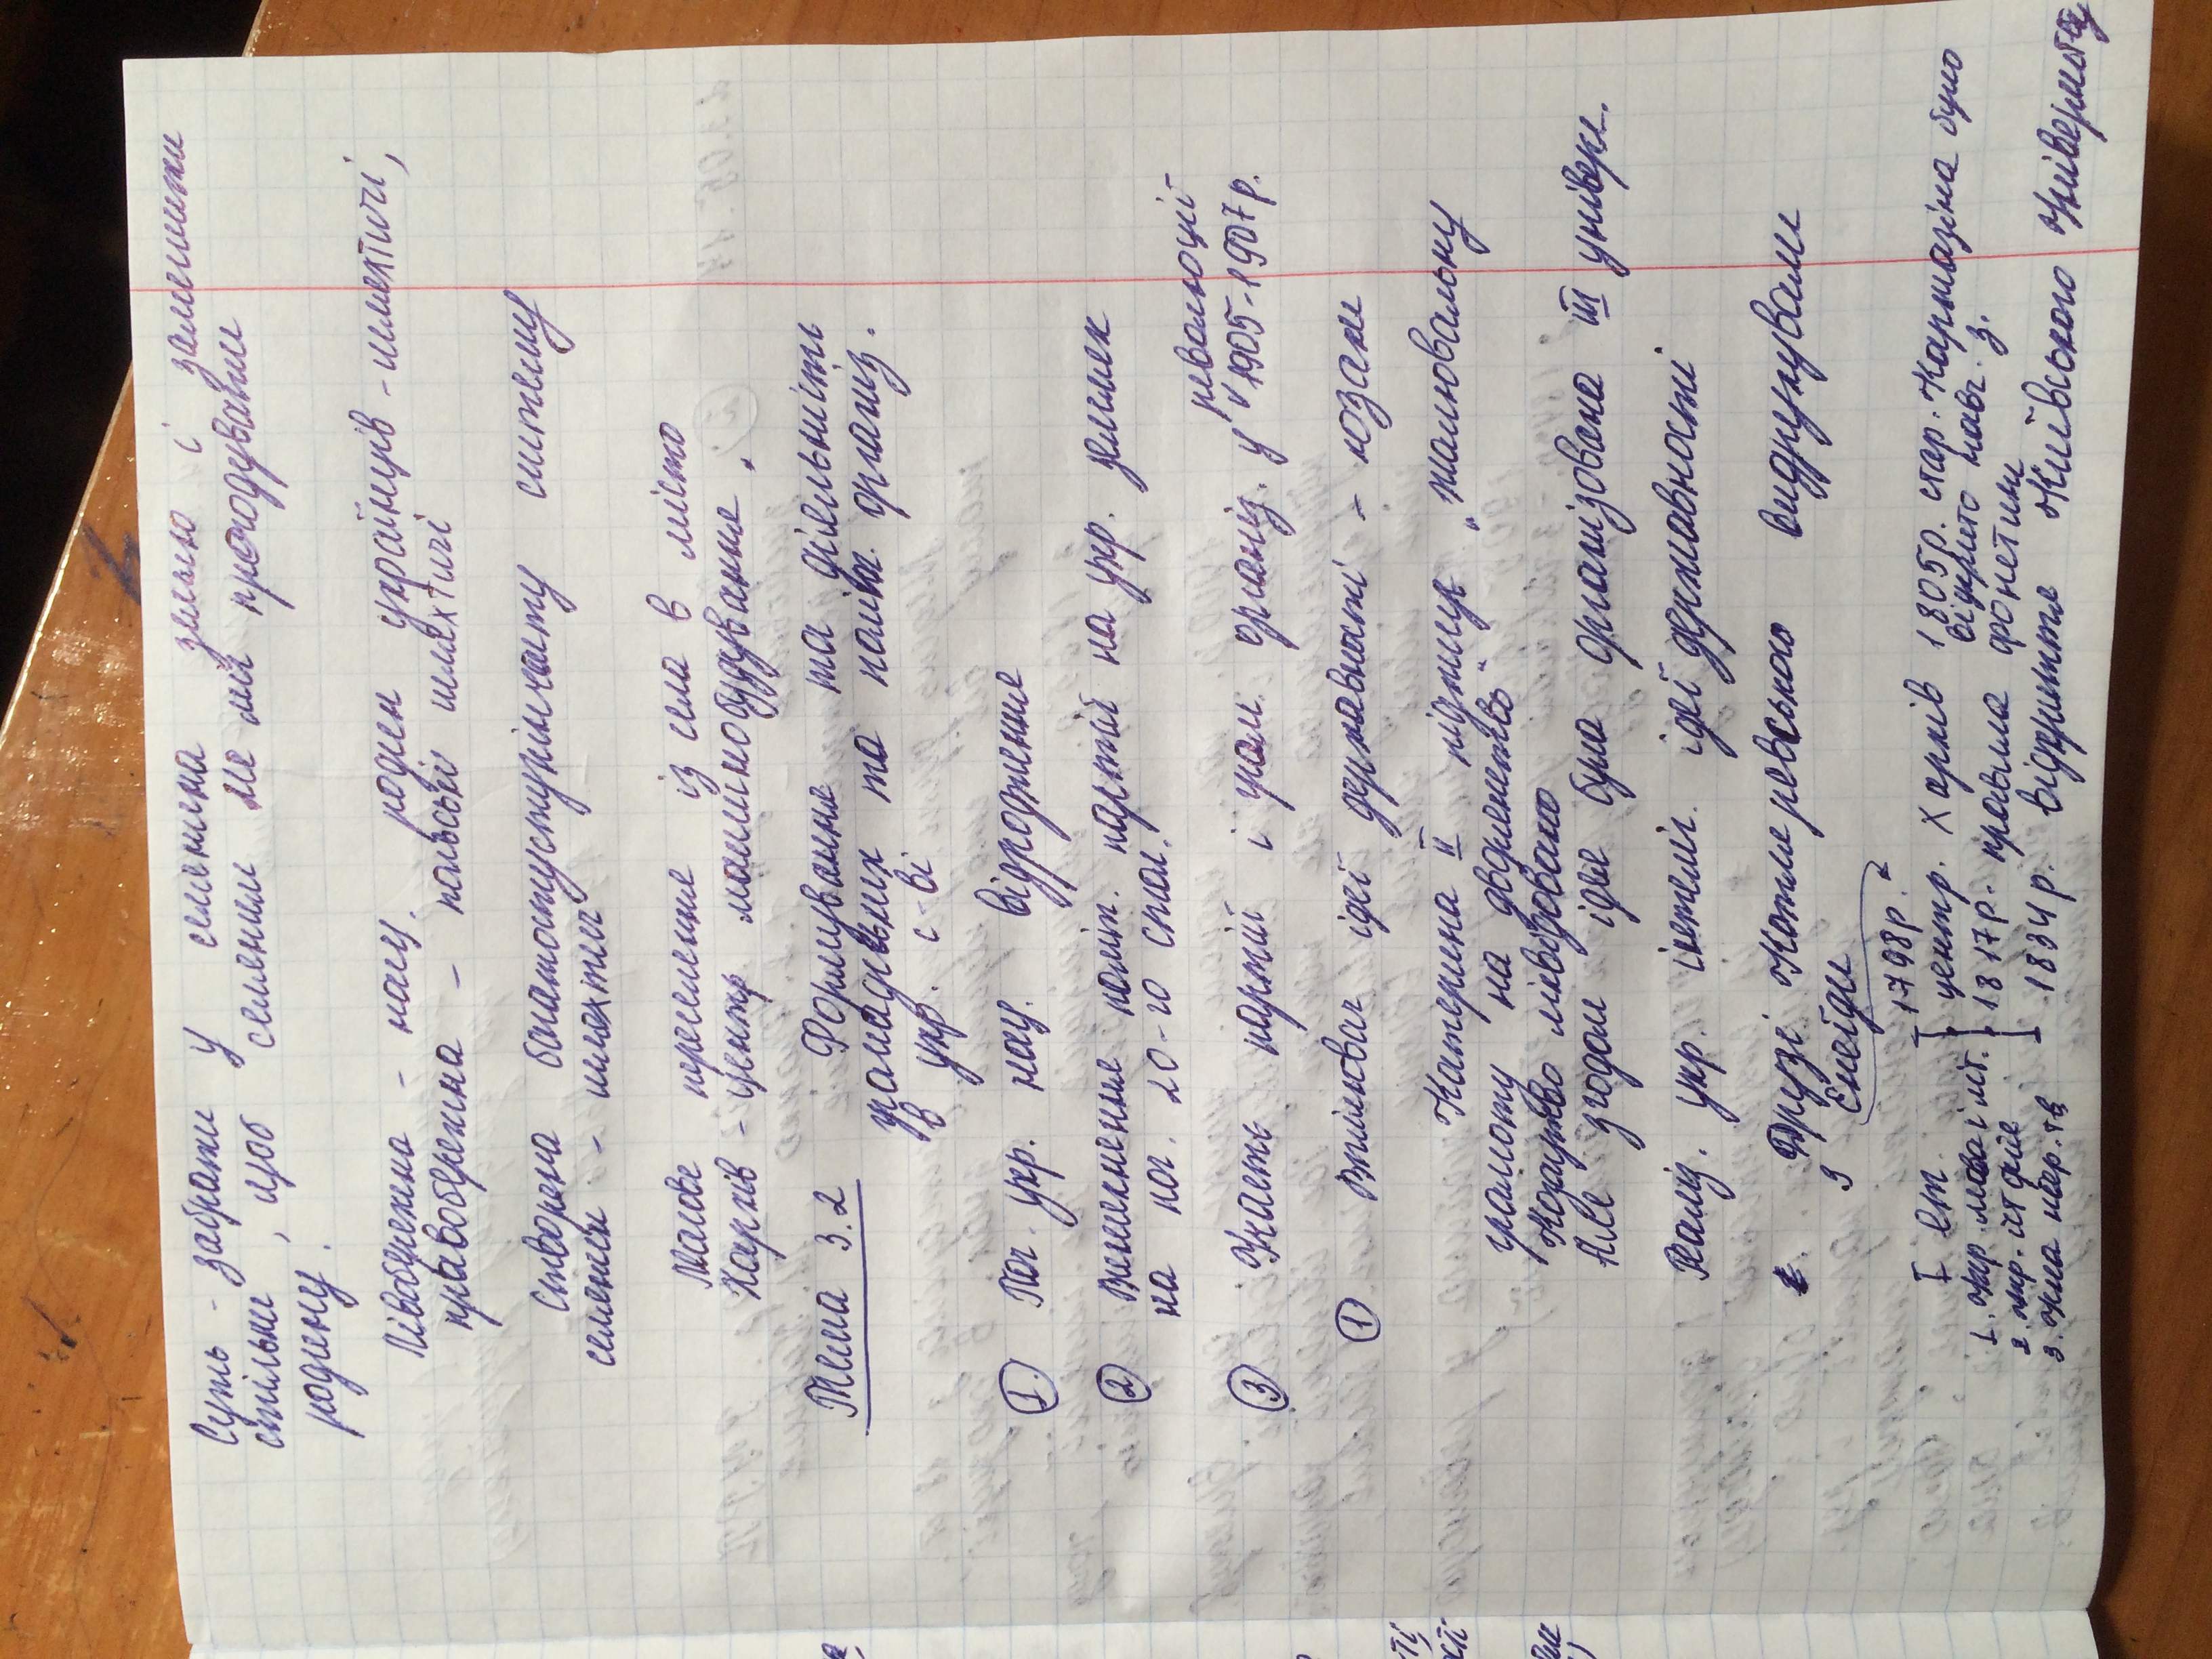 Суть - забрати у селянина землю і залишити
стільки, щоб селянин не міг прогодувати
родину.
Лівобережна - нац. родин українців - шляхтичі,
правобережна - польські шляхтичі
Створена багатостуступінчату систему
селянин - шляхтич
Масове переселення із села в місто
Харків - центр машинобудування.
Тема 3.2 Формування та діяльність
громадських та політ. організ.
в укр. с-ві
1. Поч. укр. нац. відродження
2 Виникнення політ. партій на укр. землях
на поч. 20-го стол.
революції
3 Участь партій і гром. організ. у 1905-1907 р.
1 Втілювач ідеї державності - козаки
Катерина II підписує "жалювальну
грамоту на дворянство"
Козацтво ліквідовано
Але згодом ідея була організована III універс.
Реаліз. укр. інтеліг. ідеї державності
Друзі Котляревського видрукували
3 Енеїди
1798р.
I ет. центр. Харків 1805р. стар. Кармазіна було
відкрито навч. з.
1. Укр. мова і літ. 1817р. правила фонетики
2. укр. історія
3. Усна нар. тв. 1834р. відкриття Київського Університету